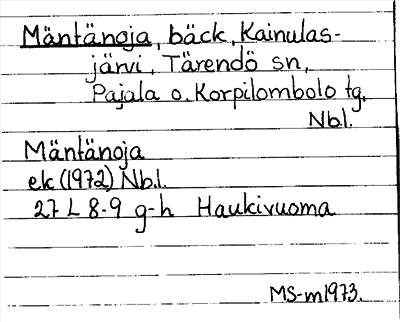 Mäntänoja, bäck, Kainulas-
järvi, Tärendö sn,
Pajala o. Korpilombolo tg,
Nb.l.
Mäntänoja
ek (1972) Nb.l.
27 L 8-9 g-h Haukivuoma
MS-m1973.